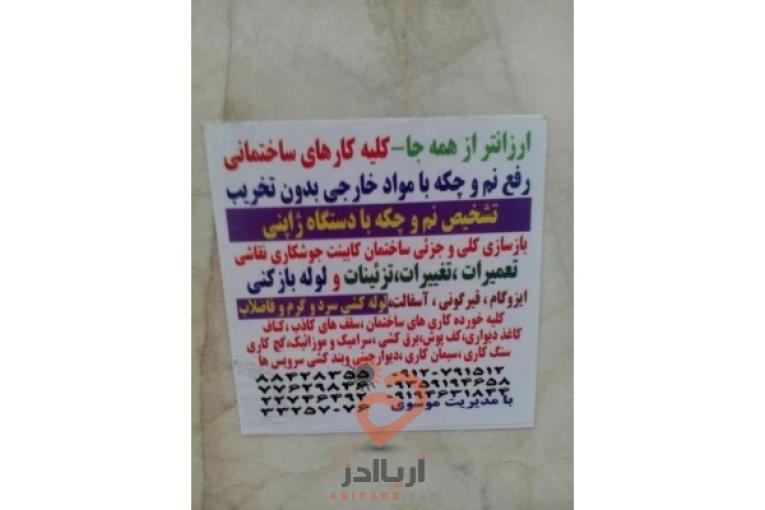 ارزانتر از همه جا-کلیه کارهای ساختمانی
رفع نم و چکه با مواد خارجی بدون تخریب
تشخیص نم و چکه با دستگاه ژاپنی
بازسازی کلی و جزئی ساختمان کابینت جوشکاری نقاشی
تعمیرات ،تغییرات،تزئینات و لوله بازکنی
ایزوگام ، قیرگونی ، آسفالت،لوله کشی سرد و گرم و فاضلاب
کلیه خورده کاری های ساختمان ،سقف های کاذب ،کناف
کاغذ دیواری،کف پوش،برق کشی ،سرامیک و موزائیک،گچ کاری
سنگ کاری ،سیمان کاری ،دیوارچینی وبند کشی سرویس ها
۰۹۱۲-۷۹۱۵۱۲
با مدیریت موسوی
۳۳۲۵۷۰۷۶
آریاادز
ARIYADS.com